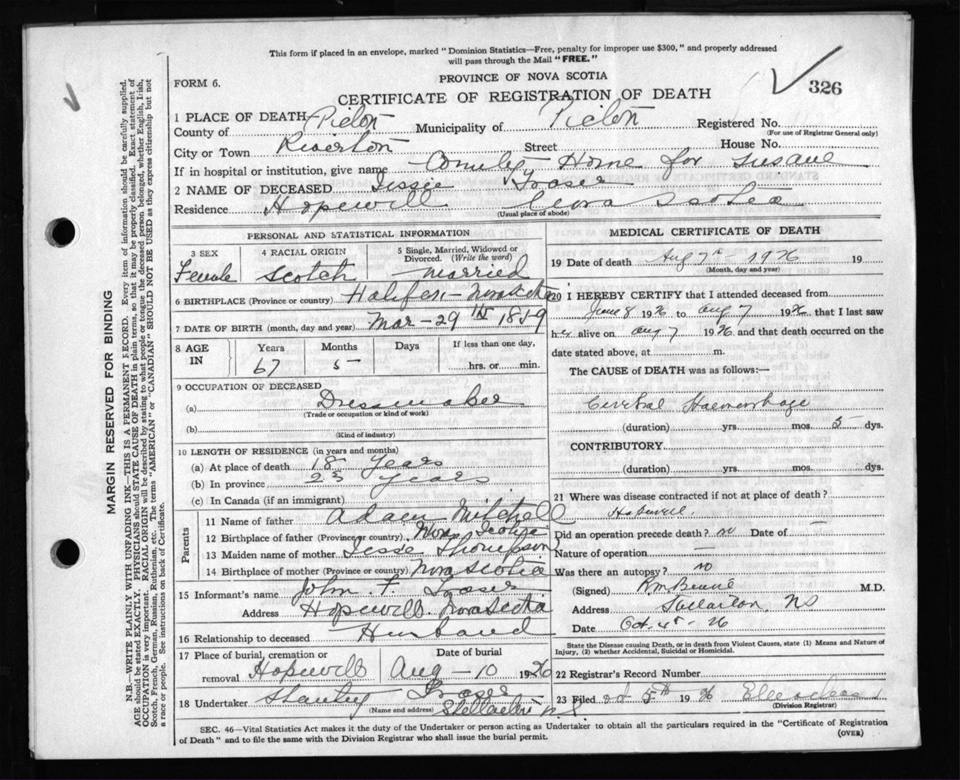 This form if placed in an envelope, marked "Dominion Statistics—Free, penalty for improper use $300," and properly addressed
will pass through the Mail "FREE."
FORM 6.
PROVINCE OF NOVA SCOTIA
326
CERTIFICATE OF REGISTRATION OF DEATH
1 PLACE OF DEATH
County of Picton Municipality of Picton Registered No.
(For use of Registrar General only)
City or Town Riverton Street House No.
If in hospital or institution, give name County Home for Insane
2 NAME OF DECEASED Jessie Fraser
Residence Hopewell Nova Scotia
(Usual place of abode)
PERSONAL AND STATISTICAL INFORMATION
3 SEX 4 RACIAL ORIGIN 5 Single, Married, Widowed or Divorced. (Write the word)
Female Scotch married
6 BIRTHPLACE (Province or country) Halifax - Nova Scotia
7 DATE OF BIRTH (month, day and year) Mar - 29th 1859
8 AGE IN Years Months Days If less than one day,
67 5 hrs. or min.
9 OCCUPATION OF DECEASED
(a) Dressmaker
(Trade or occupation or kind of work)
(b)
(Kind of industry)
10 LENGTH OF RESIDENCE (in years and months)
(a) At place of death 18 years
(b) In province years
(c) In Canada (if an immigrant)
Parents
11 Name of father Adam Mitchell
12 Birthplace of father (Province or country) Nova Scotia
13 Maiden name of mother Jessie Thompson
14 Birthplace of mother (Province or country) Nova Scotia
15 Informant's name John F. Fraser
Address Hopewell Nova Scotia
16 Relationship to deceased Husband
17 Place of burial, cremation or removal Hopewell Date of burial Aug - 10 1926
18 Undertaker Stanley Fraser
(Name and address) Stellarton N.S.
MEDICAL CERTIFICATE OF DEATH
19 Date of death Aug 7th - 1926 19
(Month, day and year)
20 I HEREBY CERTIFY that I attended deceased from
June 8 1926 to Aug 7 1926 that I last saw
her alive on Aug 7 1926 and that death occurred on the
date stated above, at m.
The CAUSE of DEATH was as follows:—
Cerebral Haemorrhage
(duration) yrs. mos. 5 dys.
CONTRIBUTORY
(duration) yrs. mos. dys.
21 Where was disease contracted if not at place of death?
Hopewell.
Did an operation precede death? no Date of —
Nature of operation —
Was there an autopsy? no
(Signed) M.D.
Address Stellarton, NS
Date Oct. 4th - 26
State the Disease causing Death, or in death from Violent Causes, state (1) Means and Nature of
Injury, (2) whether Accidental, Suicidal or Homicidal.
22 Registrar's Record Number
23 Filed 5th 1926
(Division Registrar)
SEC. 46—Vital Statistics Act makes it the duty of the Undertaker or person acting as Undertaker to obtain all the particulars required in the "Certificate of Registration
of Death" and to file the same with the Division Registrar who shall issue the burial permit.
(OVER)
MARGIN RESERVED FOR BINDING
N.B.—WRITE PLAINLY WITH UNFADING INK—THIS IS A PERMANENT RECORD. Every item of information should be carefully supplied.
AGE should be stated EXACTLY. PHYSICIANS should STATE CAUSE OF DEATH in plain terms, so that it may be properly classified. Exact statement of
OCCUPATION is very important. RACIAL ORIGIN will be described by stating to what people or tongue the deceased person belonged, whether English, Irish,
Scotch, French, German, Russian, Ruthenian, etc. The terms "AMERICAN" or "CANADIAN" SHOULD NOT BE USED as they express citizenship but not
a race or people. See instructions on back of Certificate.